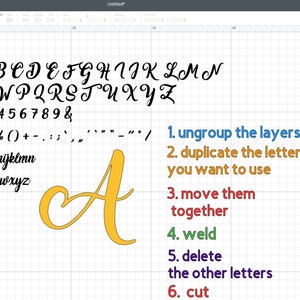 Untitled*
B C D E F G H I J K L M N
W P Q R S T U X Y Z
4 5 6 7 8 9 &
% ( ) + - . : ; ` , „ ´ ` “ ” – “ ‘ /
hijklmn
wxyz
A
1. ungroup the layers
2. duplicate the letter
you want to use
3. move them
together
4. weld
5. delete
the other letters
6. cut